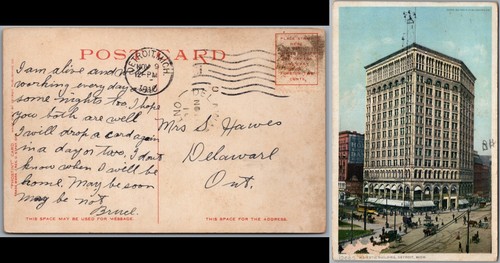 POST CARD
DETROIT, MICH.
NOV 9
12-PM
1912
PLACE STAMP HERE
I am alive and
working every day
some nights too. I hope
you both are well
I will drop a card again
in a day or two, I don't
know when I will be
home. May be soon
may be not
Bruce.
Mrs S Hawes
Delaware
Ont.
THIS SPACE MAY BE USED FOR MESSAGE.
THIS SPACE FOR THE ADDRESS.
BUILDING, DETROIT, MICH.